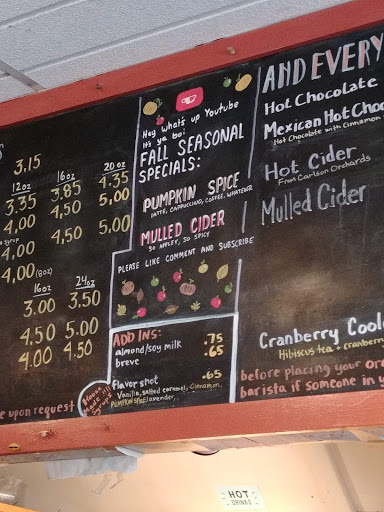 3.15
12oz 16oz 20oz
3.35 3.85 4.35
4,00 4,50 5,00
syrup
4,00 4,50 5,00
4,00 (8oz)
16oz 24oz
3.00 3.50
4.50 5.00
4.00 4.50
House
Made
Syrups
e upon request
Hey what's up Youtube
It's ya boi
FALL SEASONAL
SPECIALS:
PUMPKIN SPICE
LATTE, CAPPUCCINO, COFFEE, WHATEVER
MULLED CIDER
SO APPLEY, SO SPICY
PLEASE LIKE COMMENT AND SUBSCRIBE
ADD INS:
almond/soy milk .75
breve .65
flavor shot .65
Vanilla, salted caramel, Cinnamon,
PUMPKIN SPICE lavender,
AND EVERY
Hot Chocolate
Mexican Hot Choc
Hot Chocolate with Cinnamon
Hot Cider
From Carlson Orchards
Mulled Cider
Cranberry Coole
Hibiscus tea + cranberry
before placing your ord
barista if someone in y
HOT
DRINKS